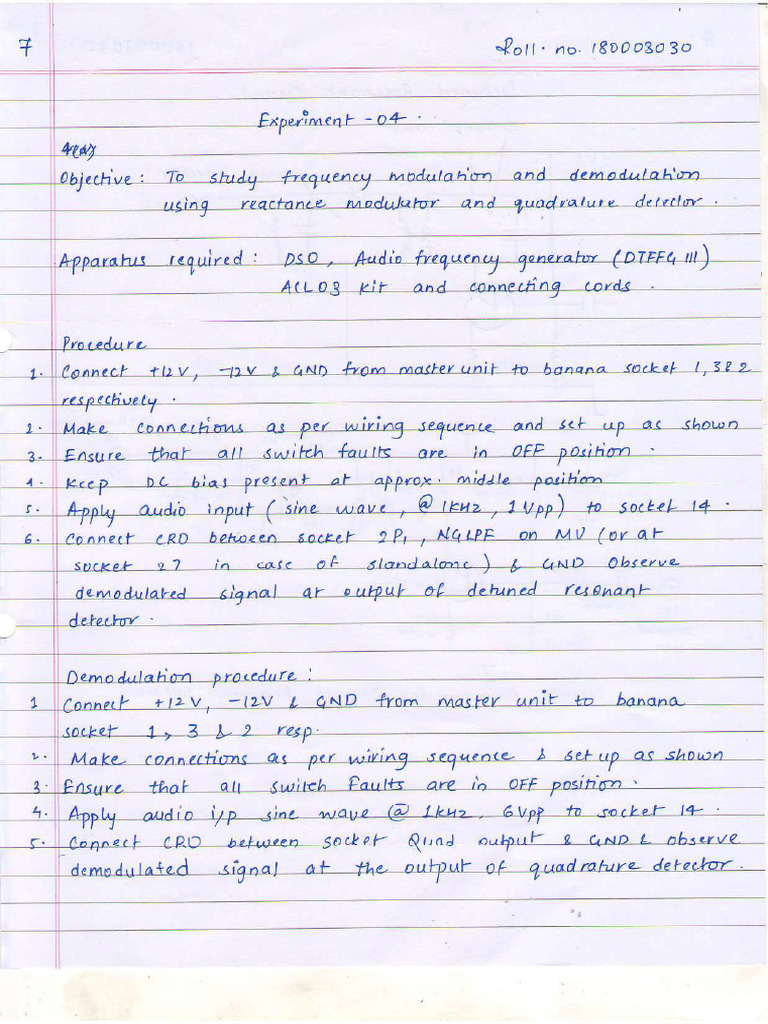 7
Roll. no. 180003030
Experiment -04.
4(a)
Objective: To study frequency modulation and demodulation
using reactance modulator and quadrature detector.
Apparatus required: DSO, Audio frequency generator (DTEFG III)
ACL03 kit and connecting cords.
Procedure
1. Connect +12V, -12V & GND from master unit to banana socket 1, 3 & 2
respectively.
2. Make connections as per wiring sequence and set up as shown
3. Ensure that all switch faults are in OFF position.
4. Keep DC bias present at approx. middle position
5. Apply audio input (sine wave, @ 1KHz, 1Vpp) to socket 14.
6. Connect CRO between socket 2P1, NGLPF on MU (or at
socket 27 in case of standalone) & GND Observe
demodulated signal at output of detuned resonant
detector.
Demodulation procedure:
1 Connect +12V, -12V & GND from master unit to banana
socket 1, 3 & 2 resp.
2. Make connections as per wiring sequence & set up as shown
3. Ensure that all switch Faults are in OFF position.
4. Apply audio i/p sine wave @ 1KHz, 6Vpp to socket 14.
5. Connect CRO between socket Quad output & GND & observe
demodulated signal at the output of quadrature detector.